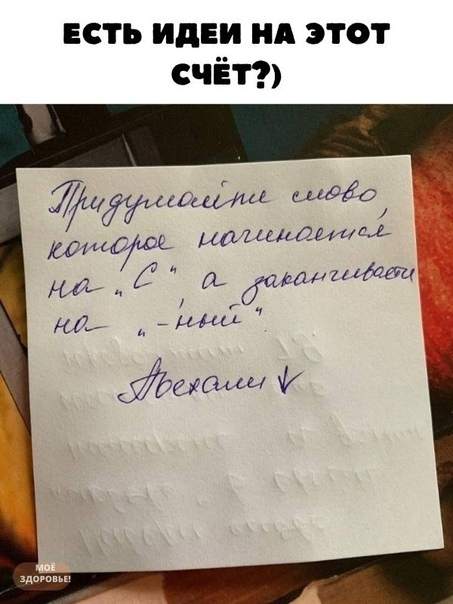 ЕСТЬ ИДЕИ НА ЭТОТ
СЧЁТ?)
Придумайте слово,
которое начинается
на „С", а заканчивается
на „-ный".
Поехали ↓
МОЁ
ЗДОРОВЬЕ!